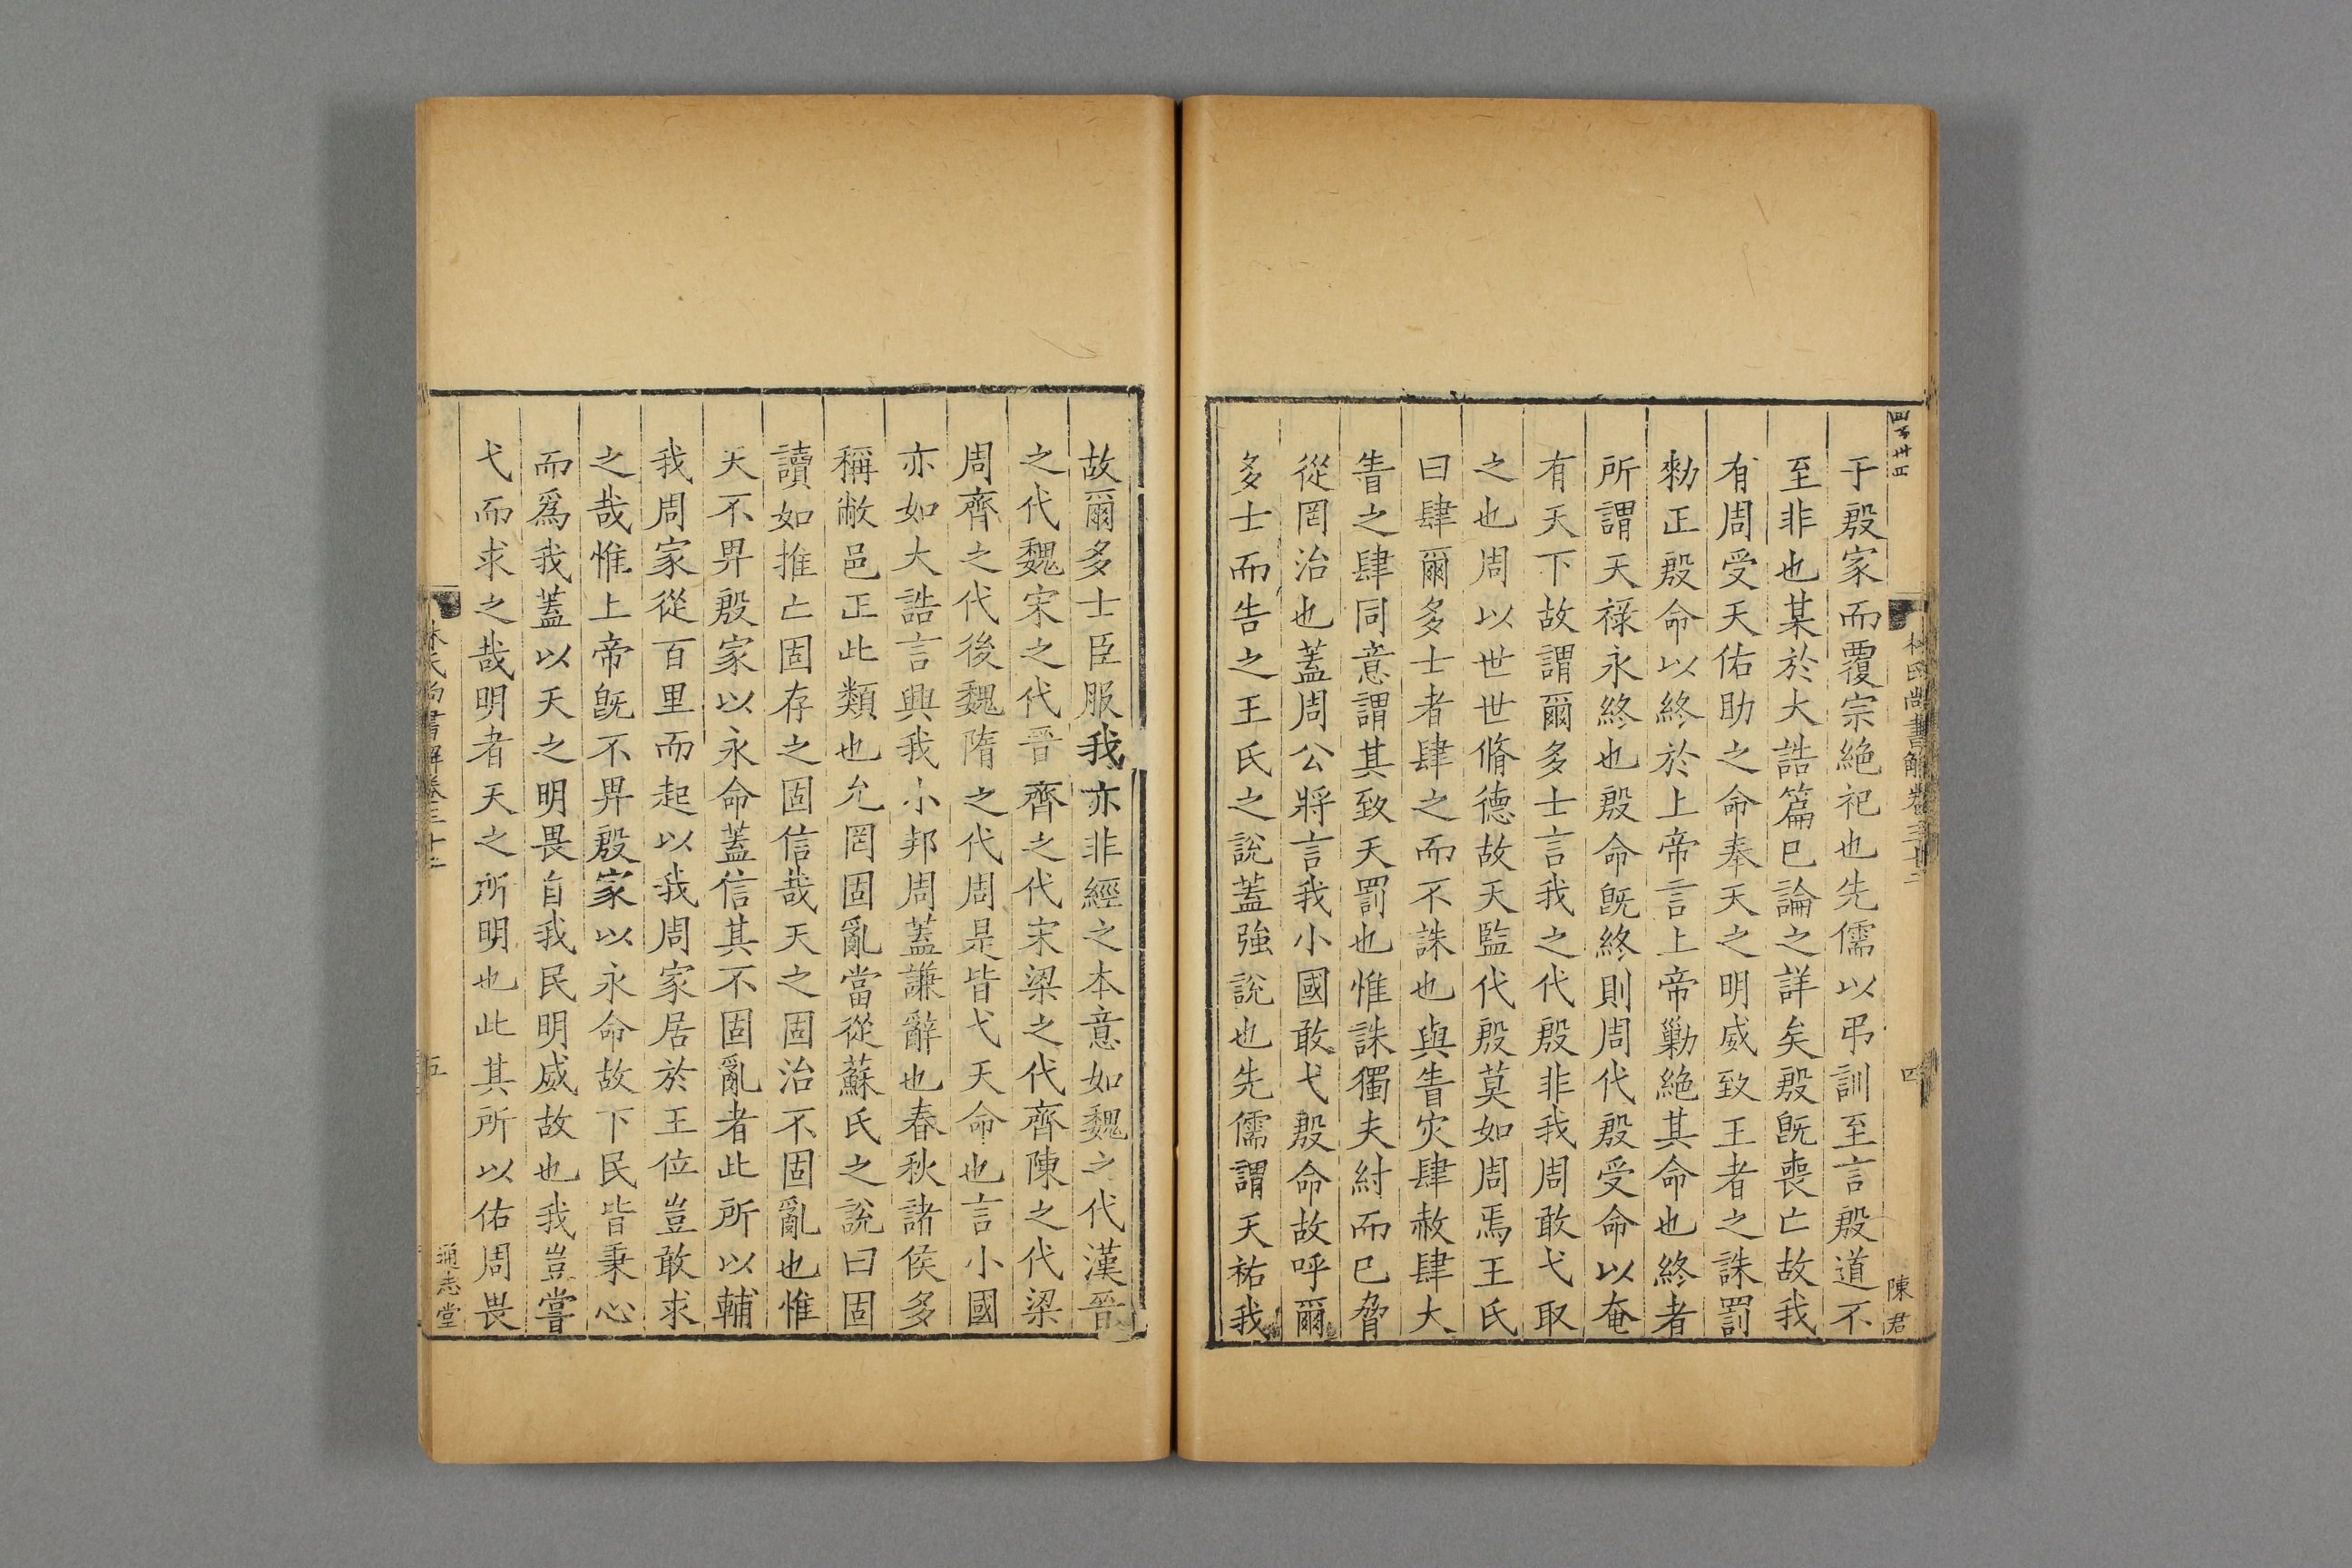 林氏尚書解卷三十二
四
陳君
于殷家而覆宗絶祀也先儒以弔訓至言殷道不
至非也某於大誥篇已論之詳矣殷旣喪亡故我
有周受天佑助之命奉天之明威致王者之誅罰
勑正殷命以終於上帝言上帝勦絶其命也終者
所謂天祿永終也殷命旣終則周代殷受命以奄
有天下故謂爾多士言我之代殷非我周敢弋取
之也周以世世脩德故天監代殷莫如周焉王氏
曰肆爾多士者肆之而不誅也與眚灾肆赦肆大
眚之肆同意謂其致天罰也惟誅獨夫紂而已脅
從罔治也蓋周公將言我小國敢弋殷命故呼爾
多士而告之王氏之說蓋強說也先儒謂天祐我
故爾多士臣服我亦非經之本意如魏之代漢晉
之代魏宋之代晉齊之代宋梁之代齊陳之代梁
周齊之代後魏隋之代周是皆弋天命也言小國
亦如大誥言興我小邦周蓋謙辭也春秋諸侯多
稱敝邑正此類也允罔固亂當從蘇氏之說曰固
讀如推亡固存之固信哉天之固治不固亂也惟
天不畀殷家以永命蓋信其不固亂者此所以輔
我周家從百里而起以我周家居於王位豈敢求
之哉惟上帝旣不畀殷家以永命故下民皆秉心
而爲我蓋以天之明畏自我民明威故也我豈嘗
弋而求之哉明者天之所明也此其所以佑周畏
林氏尚書解卷三十二
五
通志堂